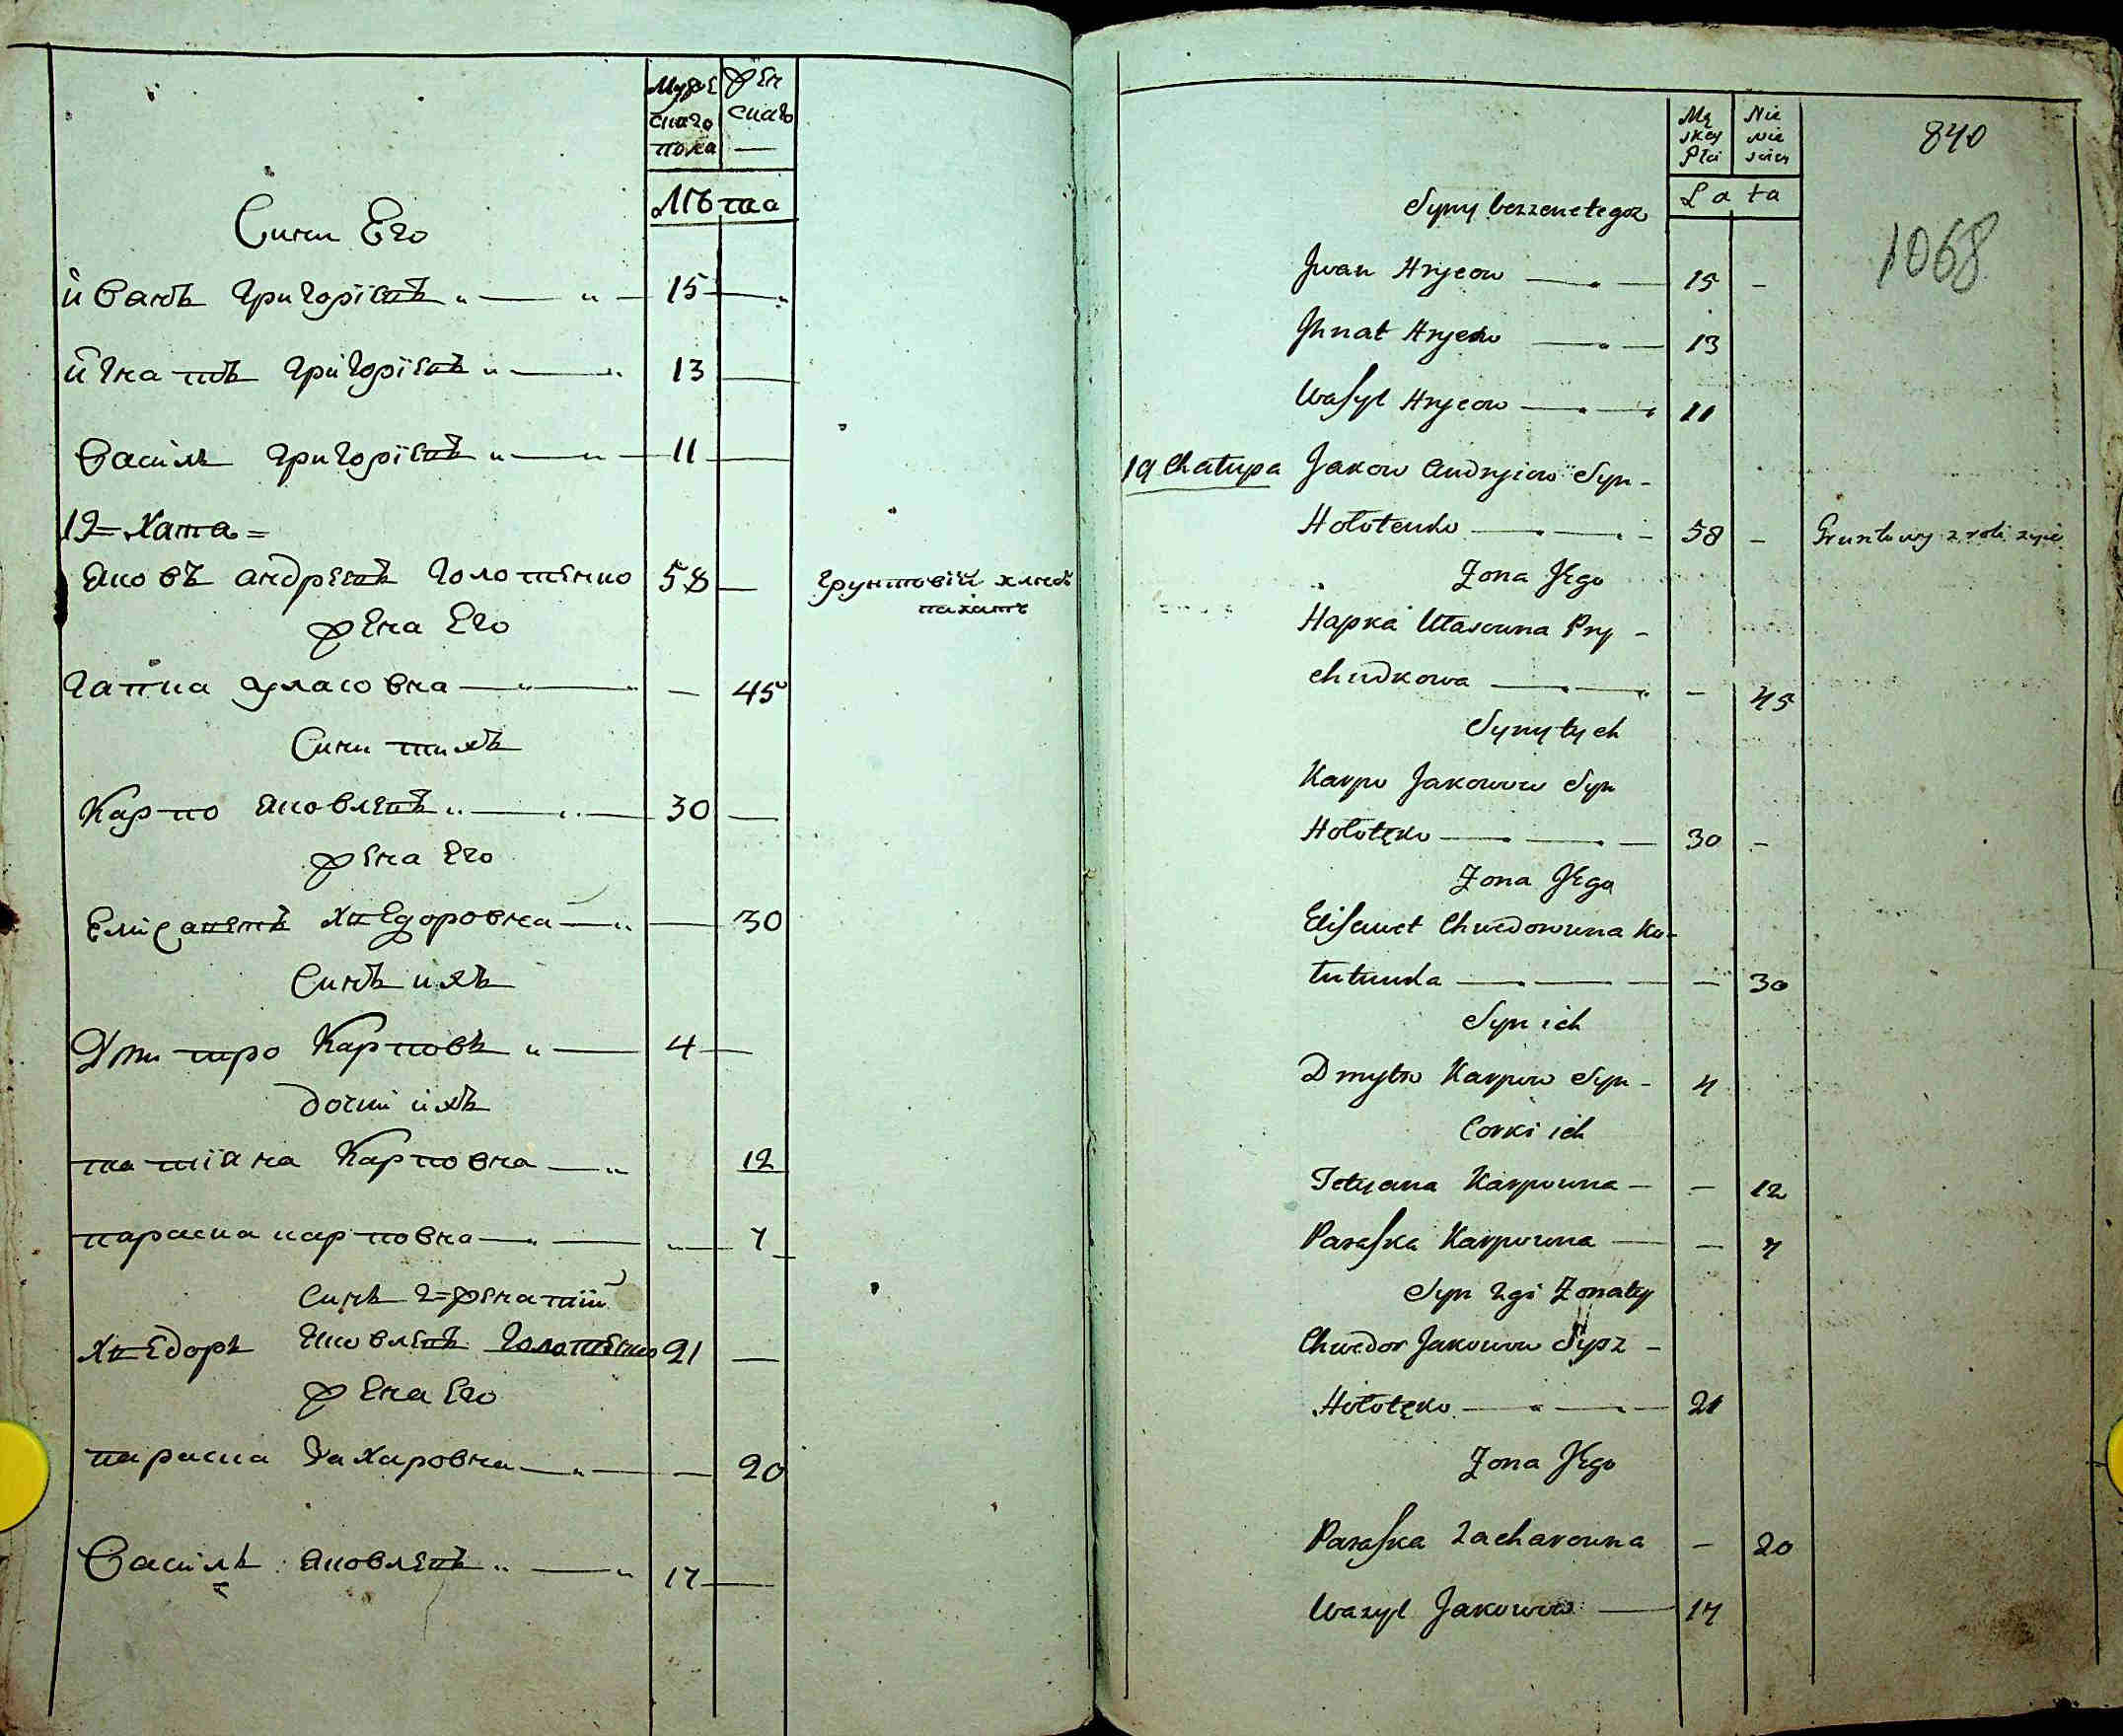 Мужес
скаго
пола
жен
скаго
Лѣта
Сини Его
иванъ григоріевъ 15
игнатъ григоріевъ 13
василь григоріевъ 11
19 = Хата =
яковъ андреевъ голотенко 58 грунтовій хлебо
пахатъ
жена Его
гапка уласовна 45
Сини тихъ
Карпо яковлевъ 30
жена Его
Елисаветъ хведоровна 30
Синъ ихъ
Дмитро Карповъ 4
дочки ихъ
татіяна Карповна 12
параска карповна 7
синъ 2 = женатій
хведоръ яковлевъ голотенко 21
жена Его
параска Захаровна 20
василь яковлевъ 17
Mę
skey
Płci
Nie
wie
sciey
Lata
840
1068
Syny bezzenetegoz
Jwan Hryców 15
Jhnat Hryców 13
Wasyl Hryców 11
19 Chałupa Jakow Andryiow Syn
Hołotenko 58 Gruntowy z roli zyie
Zona Jego
Hapka Ułasowna Pry
chudkowa 45
Syny tych
Karpo Jakowow Syn
Hołotęko 30
Zona Jego
Elisawet Chwedorowna Ko
tutunka 30
Syn ich
Dmytro Karpow Syn 4
Corki ich
Tetyana Karpowna 12
Paraska Karpowna 7
Syn 2gi Zonaty
Chwedor Jakowow Syn
Hołotęko 21
Zona Jego
Paraska Zacharowna 20
Wazyl Jakowow 17